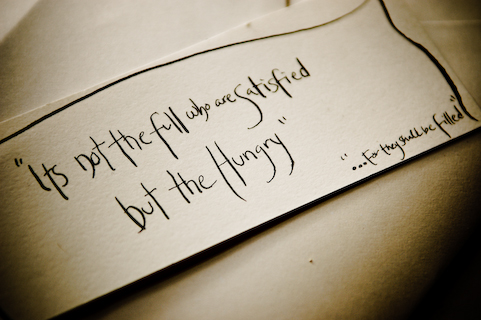 "Its not the full who are satisfied
but the Hungry"
"...for they shall be filled"